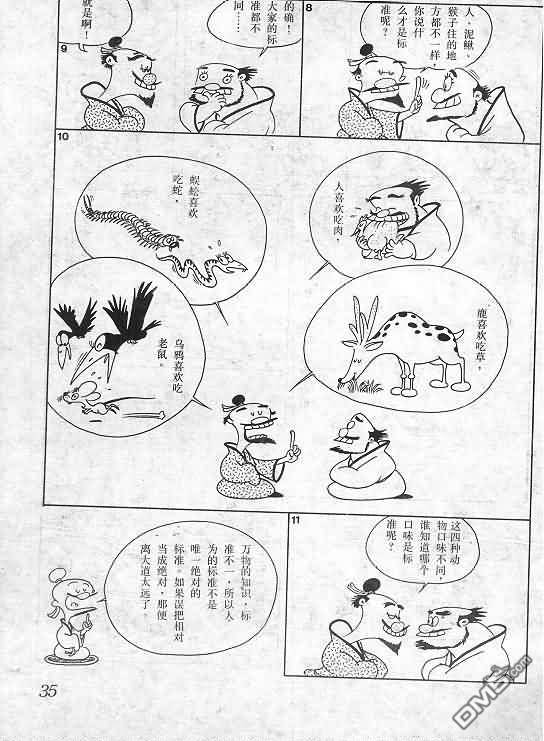 8
人、泥鳅、
猴子住的地
方都不一样，
你说什
么才是标
准呢？
9
的确！
大家的标
准都不
同……
就是啊！
10
人喜欢吃肉，
鹿喜欢吃草，
蜈蚣喜欢
吃蛇，
乌鸦喜欢吃
老鼠。
11
这四种动
物口味不同，
谁知道哪个
口味是标
准呢？
万物的知识，标
准不一，所以人
为的标准不是
唯一绝对的
标准。如果误把相对
当成绝对，那便
离大道太远了。
35
DM5.com